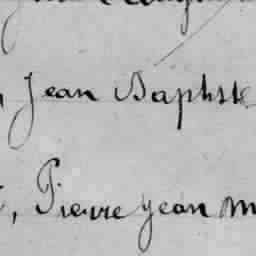 , Jean Baptiste
, Pierre jean m